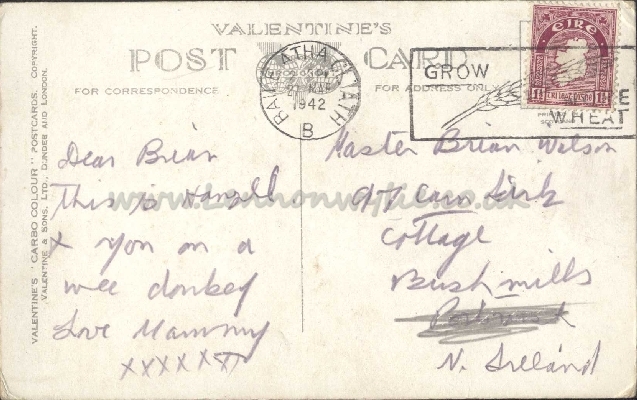 VALENTINE'S
POST CARD
FOR CORRESPONDENCE
FOR ADDRESS ONLY
VALENTINE'S "CARBO COLOUR" POSTCARDS. COPYRIGHT.
VALENTINE & SONS, LTD., DUNDEE AND LONDON.
BAILE ÁTHA CLIATH
1942
B
GROW
MORE
WHEAT
EIRE
1½ 1½
Dear Brian
This is
& you on a
wee donkey
Love Mammy
XXXXXX
Master Brian Wilson
Cottage
Bushmills
N. Ireland